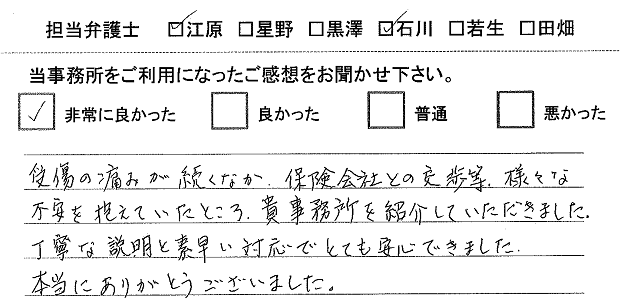 担当弁護士 ☑江原 □星野 □黒澤 ☑石川 □若生 □田畑
当事務所をご利用になったご感想をお聞かせ下さい。
☑ 非常に良かった □ 良かった □ 普通 □ 悪かった
受傷の痛みが続くなか、保険会社との交渉等、様々な
不安を抱えていたところ、貴事務所を紹介していただきました。
丁寧な説明と素早い対応でとても安心できました。
本当にありがとうございました。